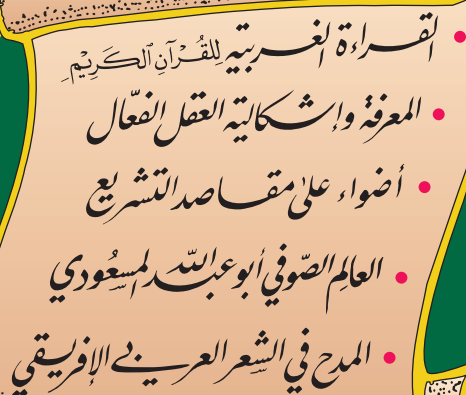 القراءة الغربية للقُرْآنِ ٱلكَرِيْمِ
المعرفة وإشكالية العقل الفعّال
أضواء على مقاصد التشريع
العالِم الصّوفي أبو عبد اللّه المسعُودي
المدح في الشّعر العربي الإفريقي